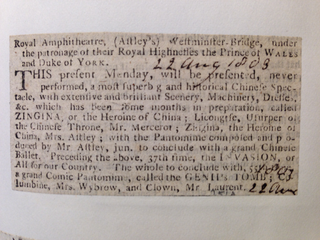 Royal Amphitheatre, (Astley's) Westminster-Bridge, under
the patronage of their Royal Highnesses the Prince of WALES
and Duke of YORK. 22 Aug 1803
THIS present Monday, will be presented, never
performed, a most superb and historical Chinese Spec-
tacle, with extensive and brilliant Scenery, Machinery, Dresses,
&c. which has been some months in preparation, called
ZINGINA, or the Heroine of China; Licongtse, Usurper of
the Chinese Throne, Mr. Mercerot; Zingina, the Heroine of
China, Mrs. Astley; with the Pantomime composed and pro-
duced by Mr Astley, jun. to conclude with a grand Chinese
Ballet. Preceding the above, 37th time, the INVASION, or
All for our Country. The whole to conclude with,
a grand Comic Pantomime, called the GENII'S TOMB; Co-
lumbine, Mrs. Wybrow, and Clown, Mr Laurent. 22 Aug